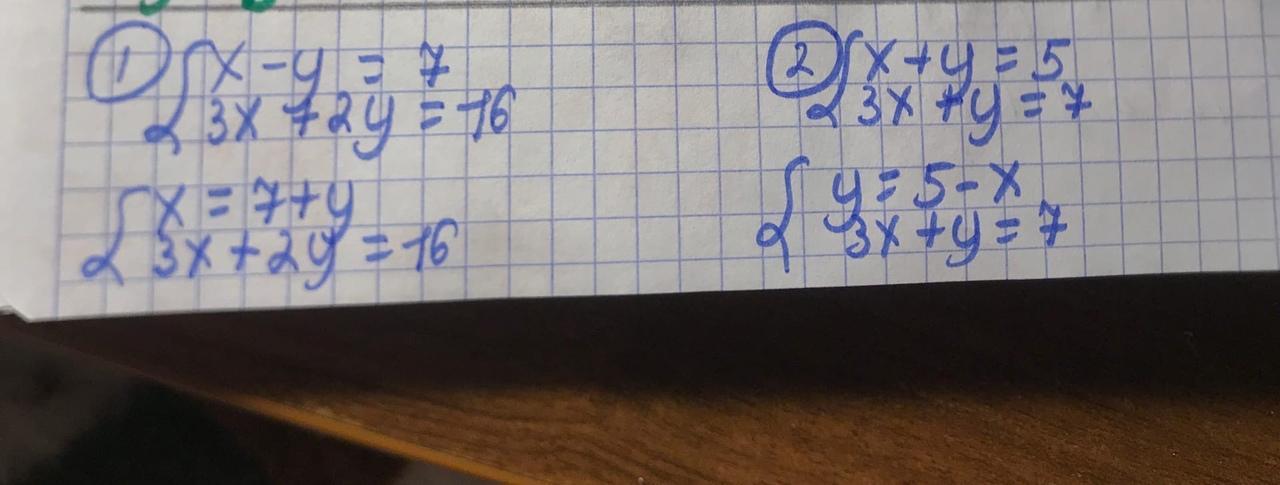 ① { x - y = 7
3x + 2y = -16
{ x = 7 + y
3x + 2y = -16
② { x + y = 5
3x + y = 7
{ y = 5 - x
3x + y = 7